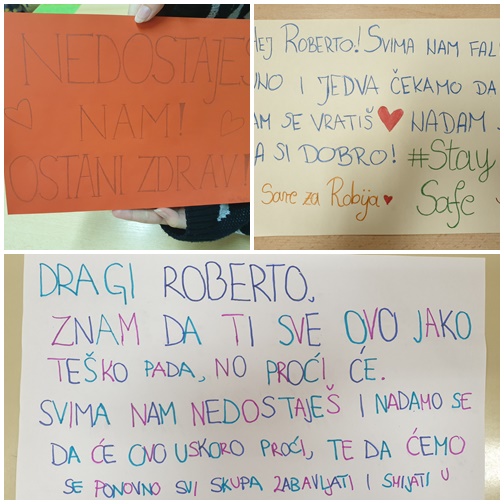 NEDOSTAJEŠ
NAM!
OSTANI ZDRAV!
HEJ ROBERTO! SVIMA NAM FAL
NO I JEDVA ČEKAMO DA
SE VRATIŠ NADAM
SI DOBRO! #Stay
Safe
Sare za Robija
DRAGI ROBERTO,
ZNAM DA TI SVE OVO JAKO
TEŠKO PADA, NO PROĆI ĆE.
SVIMA NAM NEDOSTAJEŠ I NADAMO SE
DA ĆE OVO USKORO PROĆI, TE DA ĆEMO
SE PONOVNO SVI SKUPA ZABAVLJATI I SMIJATI U